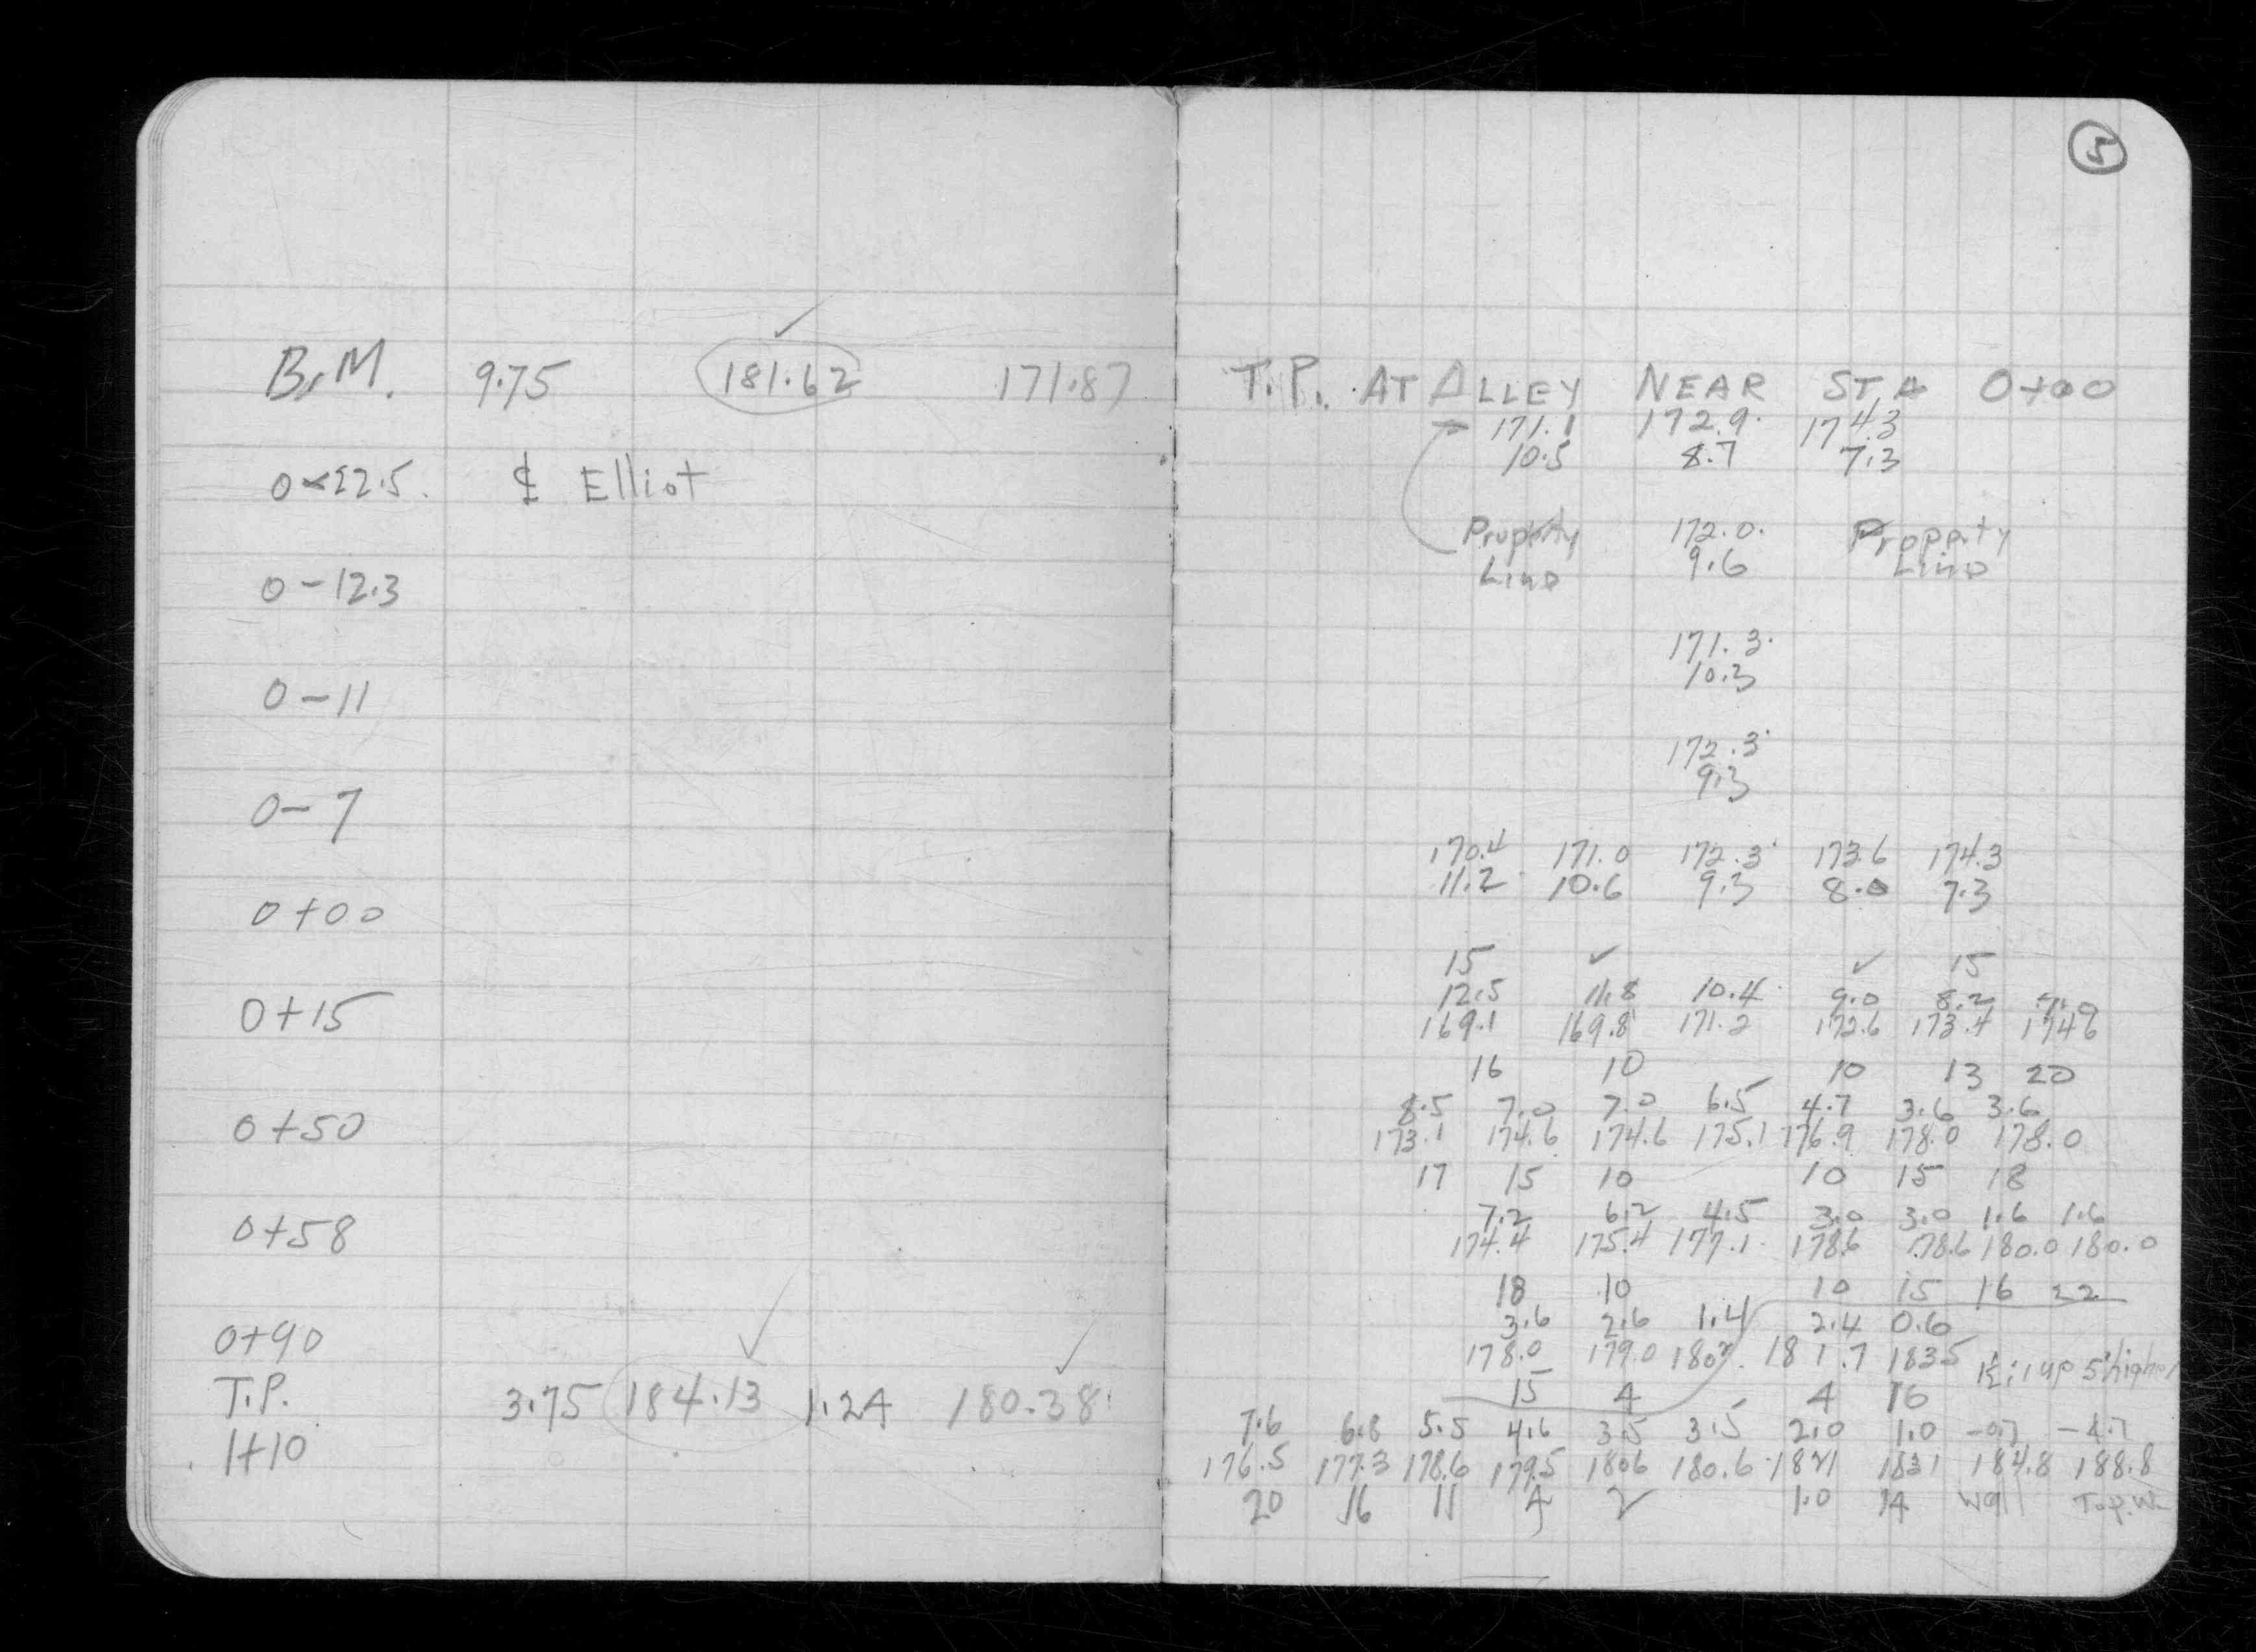 5
B.M. 9.75 181.62 171.87 T.P. AT ALLEY NEAR STA 0+00
171.1 172.9 174.3
10.5 8.7 7.3
0-22.5 ℄ Elliot
Property Line 172.0 Property Line
9.6
0-12.3
171.3
10.3
0-11
172.3
9.3
0-7
170.4 171.0 172.3 173.6 174.3
11.2 10.6 9.3 8.0 7.3
0+00
15 ✓ ✓ 15
12.5 11.8 10.4 9.0 8.2
0+15
169.1 169.8 171.2 172.6 173.4
16 10 10 13 20
8.5 7.0 7.0 6.5 4.7 3.6 3.6
0+50
173.1 174.6 174.6 175.1 176.9 178.0 178.0
17 15 10 10 15 18
7.2 6.2 4.5 3.0 3.0 1.6 1.6
0+58
174.4 175.4 177.1 178.6 178.6 180.0 180.0
18 10 10 15 16 22
3.6 2.6 1.4 2.4 0.6
0+90
178.0 179.0 180.2 181.7 183.5 up 5' higher
T.P. 3.75 184.13 1.24 180.38
15 4 4 16
7.6 6.8 5.5 4.6 3.5 3.5 2.0 1.0 -0.7 -4.7
1+10
176.5 177.3 178.6 179.5 180.6 180.6 182.1 183.1 184.8 188.8
20 16 11 4 2 10 14 Wall Top W.